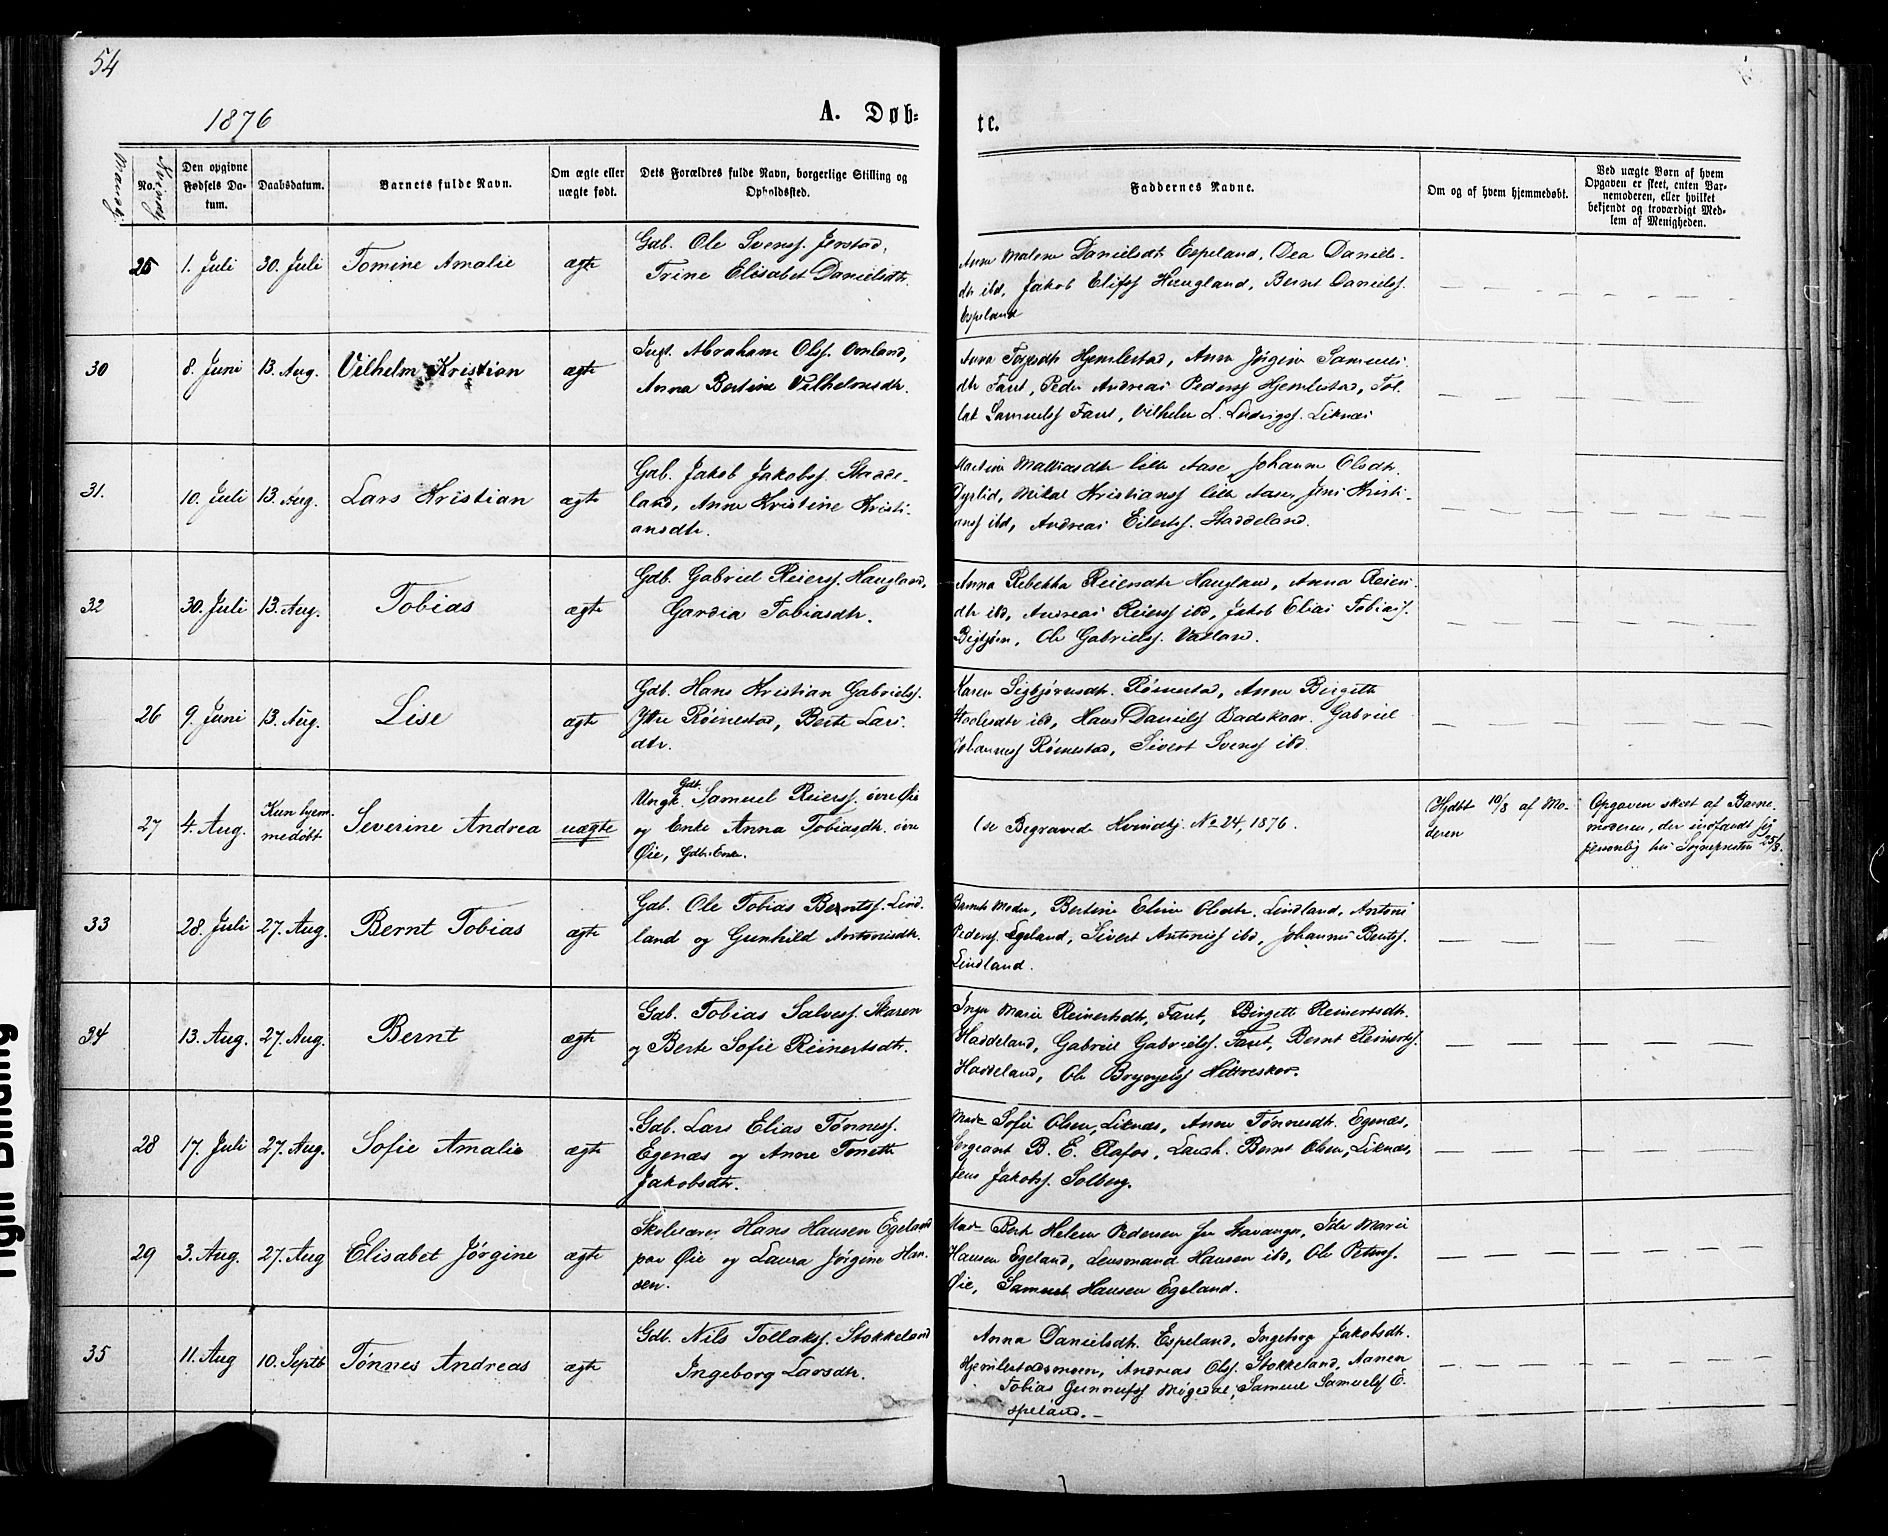 54
1876
A. Døb-
te.
Mandkj.
No.
Kvindekj.
Den opgivne Fødsels Da-tum.
Daabsdatum.
Barnets fulde Navn.
Om ægte eller uægte født.
Dets Forældres fulde Navn, borgerlige Stilling og Opholdssted.
Faddernes Navne.
Om og af hvem hjemmedøbt.
Ved uægte Børn af hvem
Opgaven er skeet, enten Bar-
nemoderen, eller hvilket
bekjendt og troværdigt Med-
lem af Menigheden.
25 1. Juli 30. Juli Tomine Amalie ægte
Gdb. Ole Svenss. Jerstad,
Trine Elisabet Danielsdtr.
Anna Malene Danielsdtr Espeland, Dea Daniels-
dtr ibd, Jakob Elifss Haugland, Bernt Danielss.
Espeland
30 8. Juni 13. Aug. Vilhelm Kristian ægte
Abraham Olss. Omland,
Anna Bertine Vilhelmsdtr.
Anna Hjemlestad, Anna Jørgine Samuels
dtr Faret, Peder Andreas Pederss Hjemlestad, Tol-
lak Samuelss Faret, Vilhelm L. Ludvigss. Liknæs
31. 10. Juli 13. Aug. Lars Kristian ægte
Gdb. Jakob Jakobss. Stadde-
land, Anne Kristine Kristi-
ansdtr.
Martine Mathiasdtr lille Aase, Johanne Olsdtr.
Dyrlid, Mikal Kristianss lille Aase, Jens Kristi-
anss ibd, Andreas Eilertss. Staddeland.
32 30. Juli 13. Aug. Tobias ægte
Gdb. Gabriel Reierss. Haugland,
Gardia Tobiasdtr.
Anna Rebekka Reiersdtr Haugland, Anna Reiers
dtr ibd, Andreas Reierss ibd, Jakob Elias Tobiass.
Ole Gabrielss.
26 9. Juni 13. Aug. Lise ægte
Gdb. Hans Kristian Gabrielss.
Ytre Rømestad, Berte Lars-
dtr.
Karen Sigbjørnsdtr. Rømestad, Anne Birgitte
ibd, Hans Danielss Badskaar. Gabriel
Johanness Rømestad, Sivert Svenss ibd.
27 4. Aug. Kun hjem-
medøbt Severine Andrea uægte
Gdb.
Ungk. Samuel Reierss. øvre Øie
og Enke Anna Tobiasdtr. øvre
Øie, Gdbr. Enke.
(se Begravede Kvindekj. No 24, 1876.
Hjdøbt 10/8 af Mo-
deren
Opgaven skeet af Barne-
moderen, der indfandt sig
personlig hos Sognepresten 25/8.
33 28. Juli 27. Aug. Bernt Tobias ægte
Gdb. Ole Tobias Berntss. Lind-
land og Gunhild Antonisdtr.
Barnets Moder, Bertine Eline Olsdtr. Lindland, Antoni
Pederss. Egeland, Sivert Antoniss ibd, Johannes Bentss.
Lindland.
34 13. Aug. 27. Aug. Bernt ægte
Gdb. Tobias Salvess. Skaren
og Berte Sofie Reinertsdtr.
Inger Marie Reinertsdtr, Faret, Birgitte Reinertsdtr.
Haddeland, Gabriel Gabrielss. Faret, Bernt Reinertss.
Haddeland, Ole
28 17. Juli 27. Aug. Sofie Amalie ægte
Gdb. Lars Elias Tønness.
Egenæs og Anne Tonette
Jakobsdtr.
Mad. Sofie Olsen, Liknæs, Anne Tønnesdtr. Egenæs,
Sergeant B. E. Rafos, Landh. Bernt Olsen, Liknæs,
Jens Jakobss. Solberg.
29 3. Aug. 27. Aug Elisabet Jørgine ægte
Skolelærer Hans Hansen Egeland
paa Øie og Laura Jørgine Han-
sen.
Mad. Berte Helene Pedersen fra Stavanger, Ida Marie
Hansen Egeland, Lensmand Hansen ibd, Ole Peterss.
Øie, Samuel Hansen Egeland.
35 11. Aug 10. Septb Tønnes Andreas ægte
Gdb. Nils Tollakss. Stokkeland
Ingeborg Larsdtr.
Anna Danielsdtr. Espeland, Ingeborg Jakobsdtr.
Hjemlestadmoen, Andreas Olss. Stokkeland, Aanen
Tobias Gunnufss Møgedal, Samuel Samuelss E-
speland.
Tight Binding